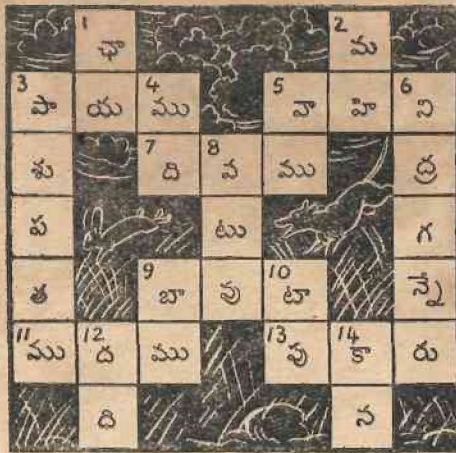 1 ఛా 2 మ
3 పా య 4 ము 5 వా హి 6 ని
శు 7 ది 8 వ ము ద్ర
ప టు గ
త 9 బా వు 10 టా న్నే
11 ము 12 ద ము 13 పు 14 కా రు
ది న